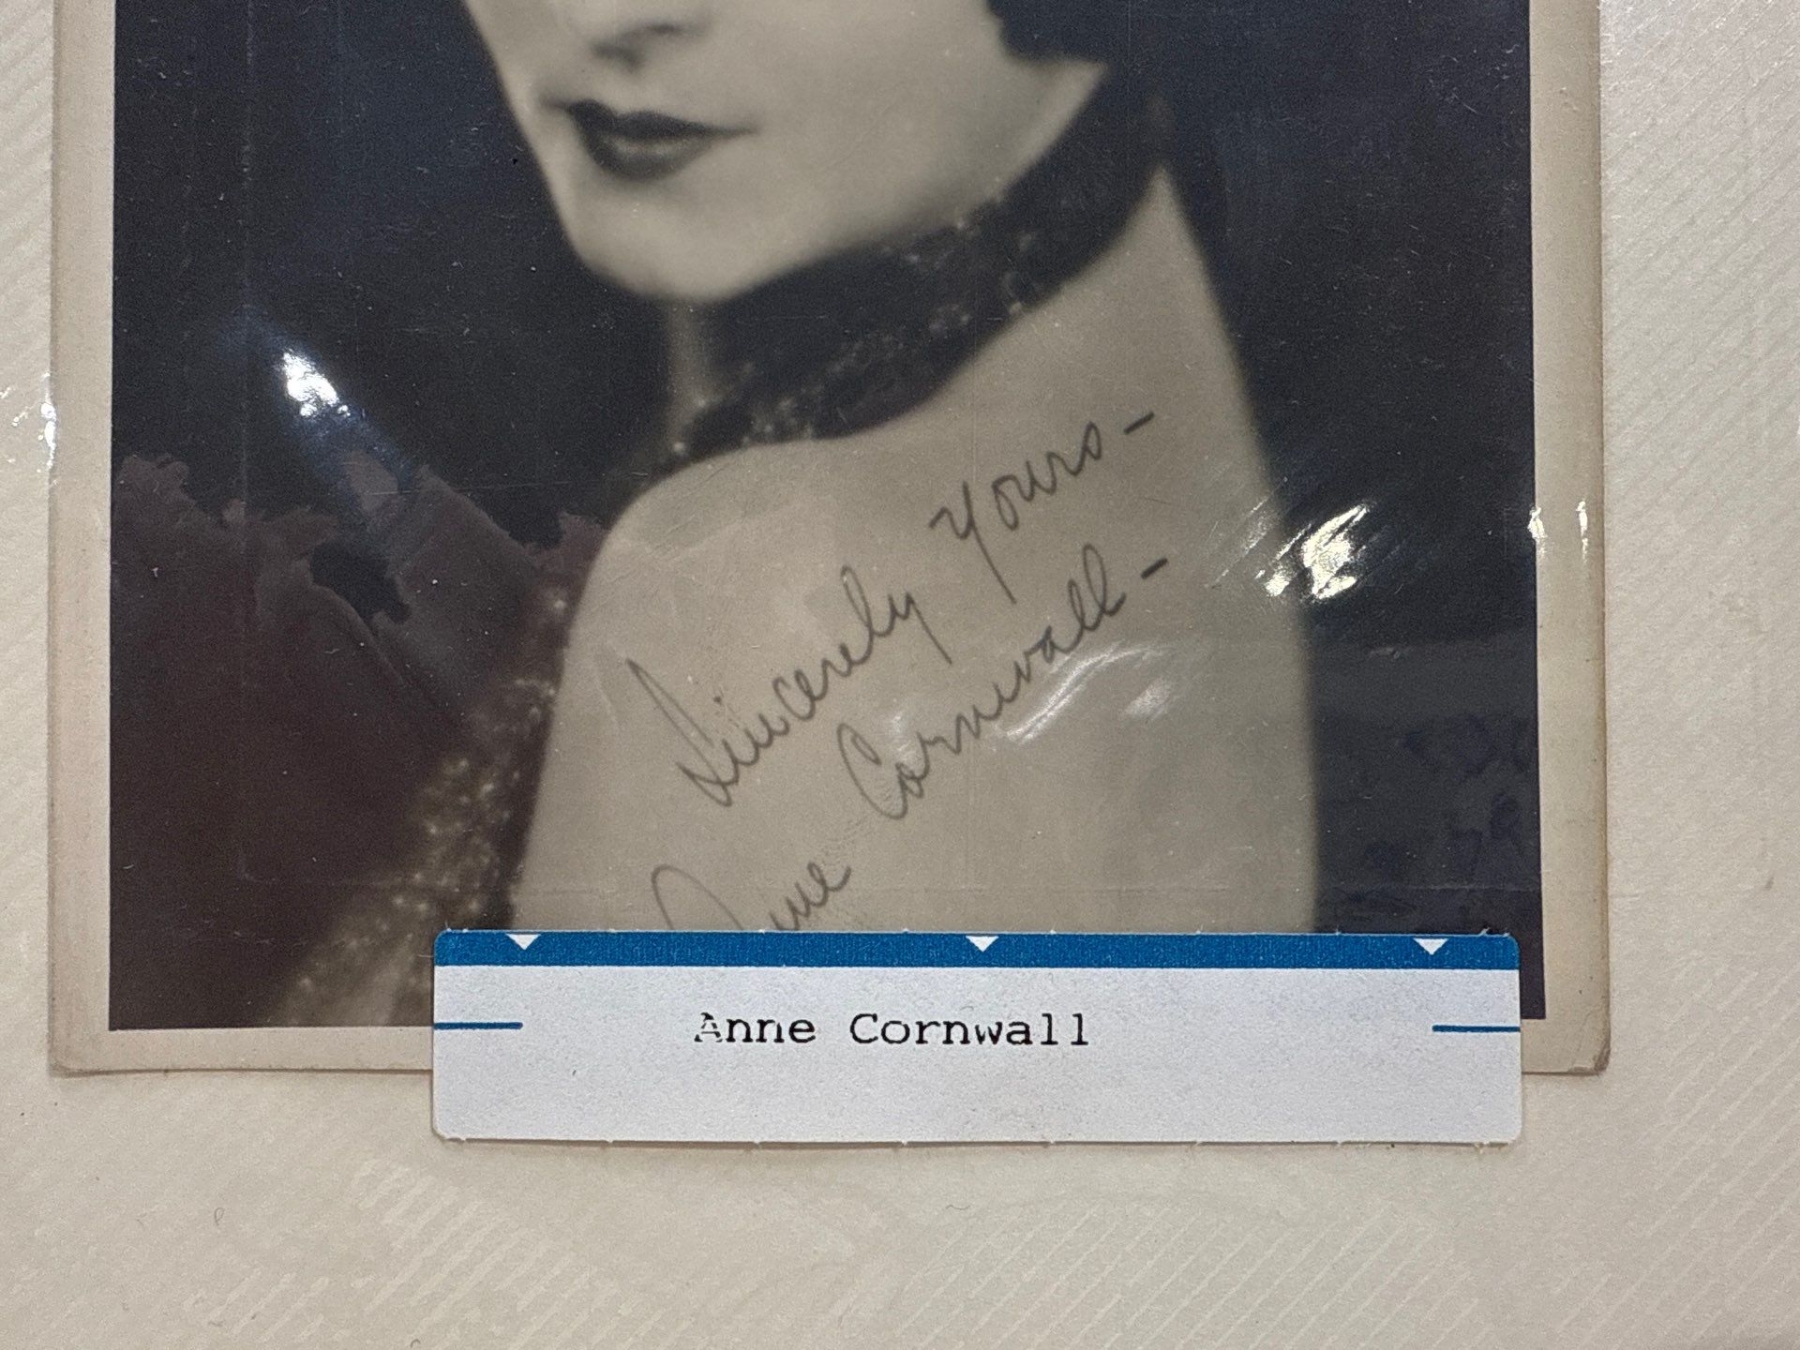 Sincerely Yours-
Anne Cornwall-
Anne Cornwall